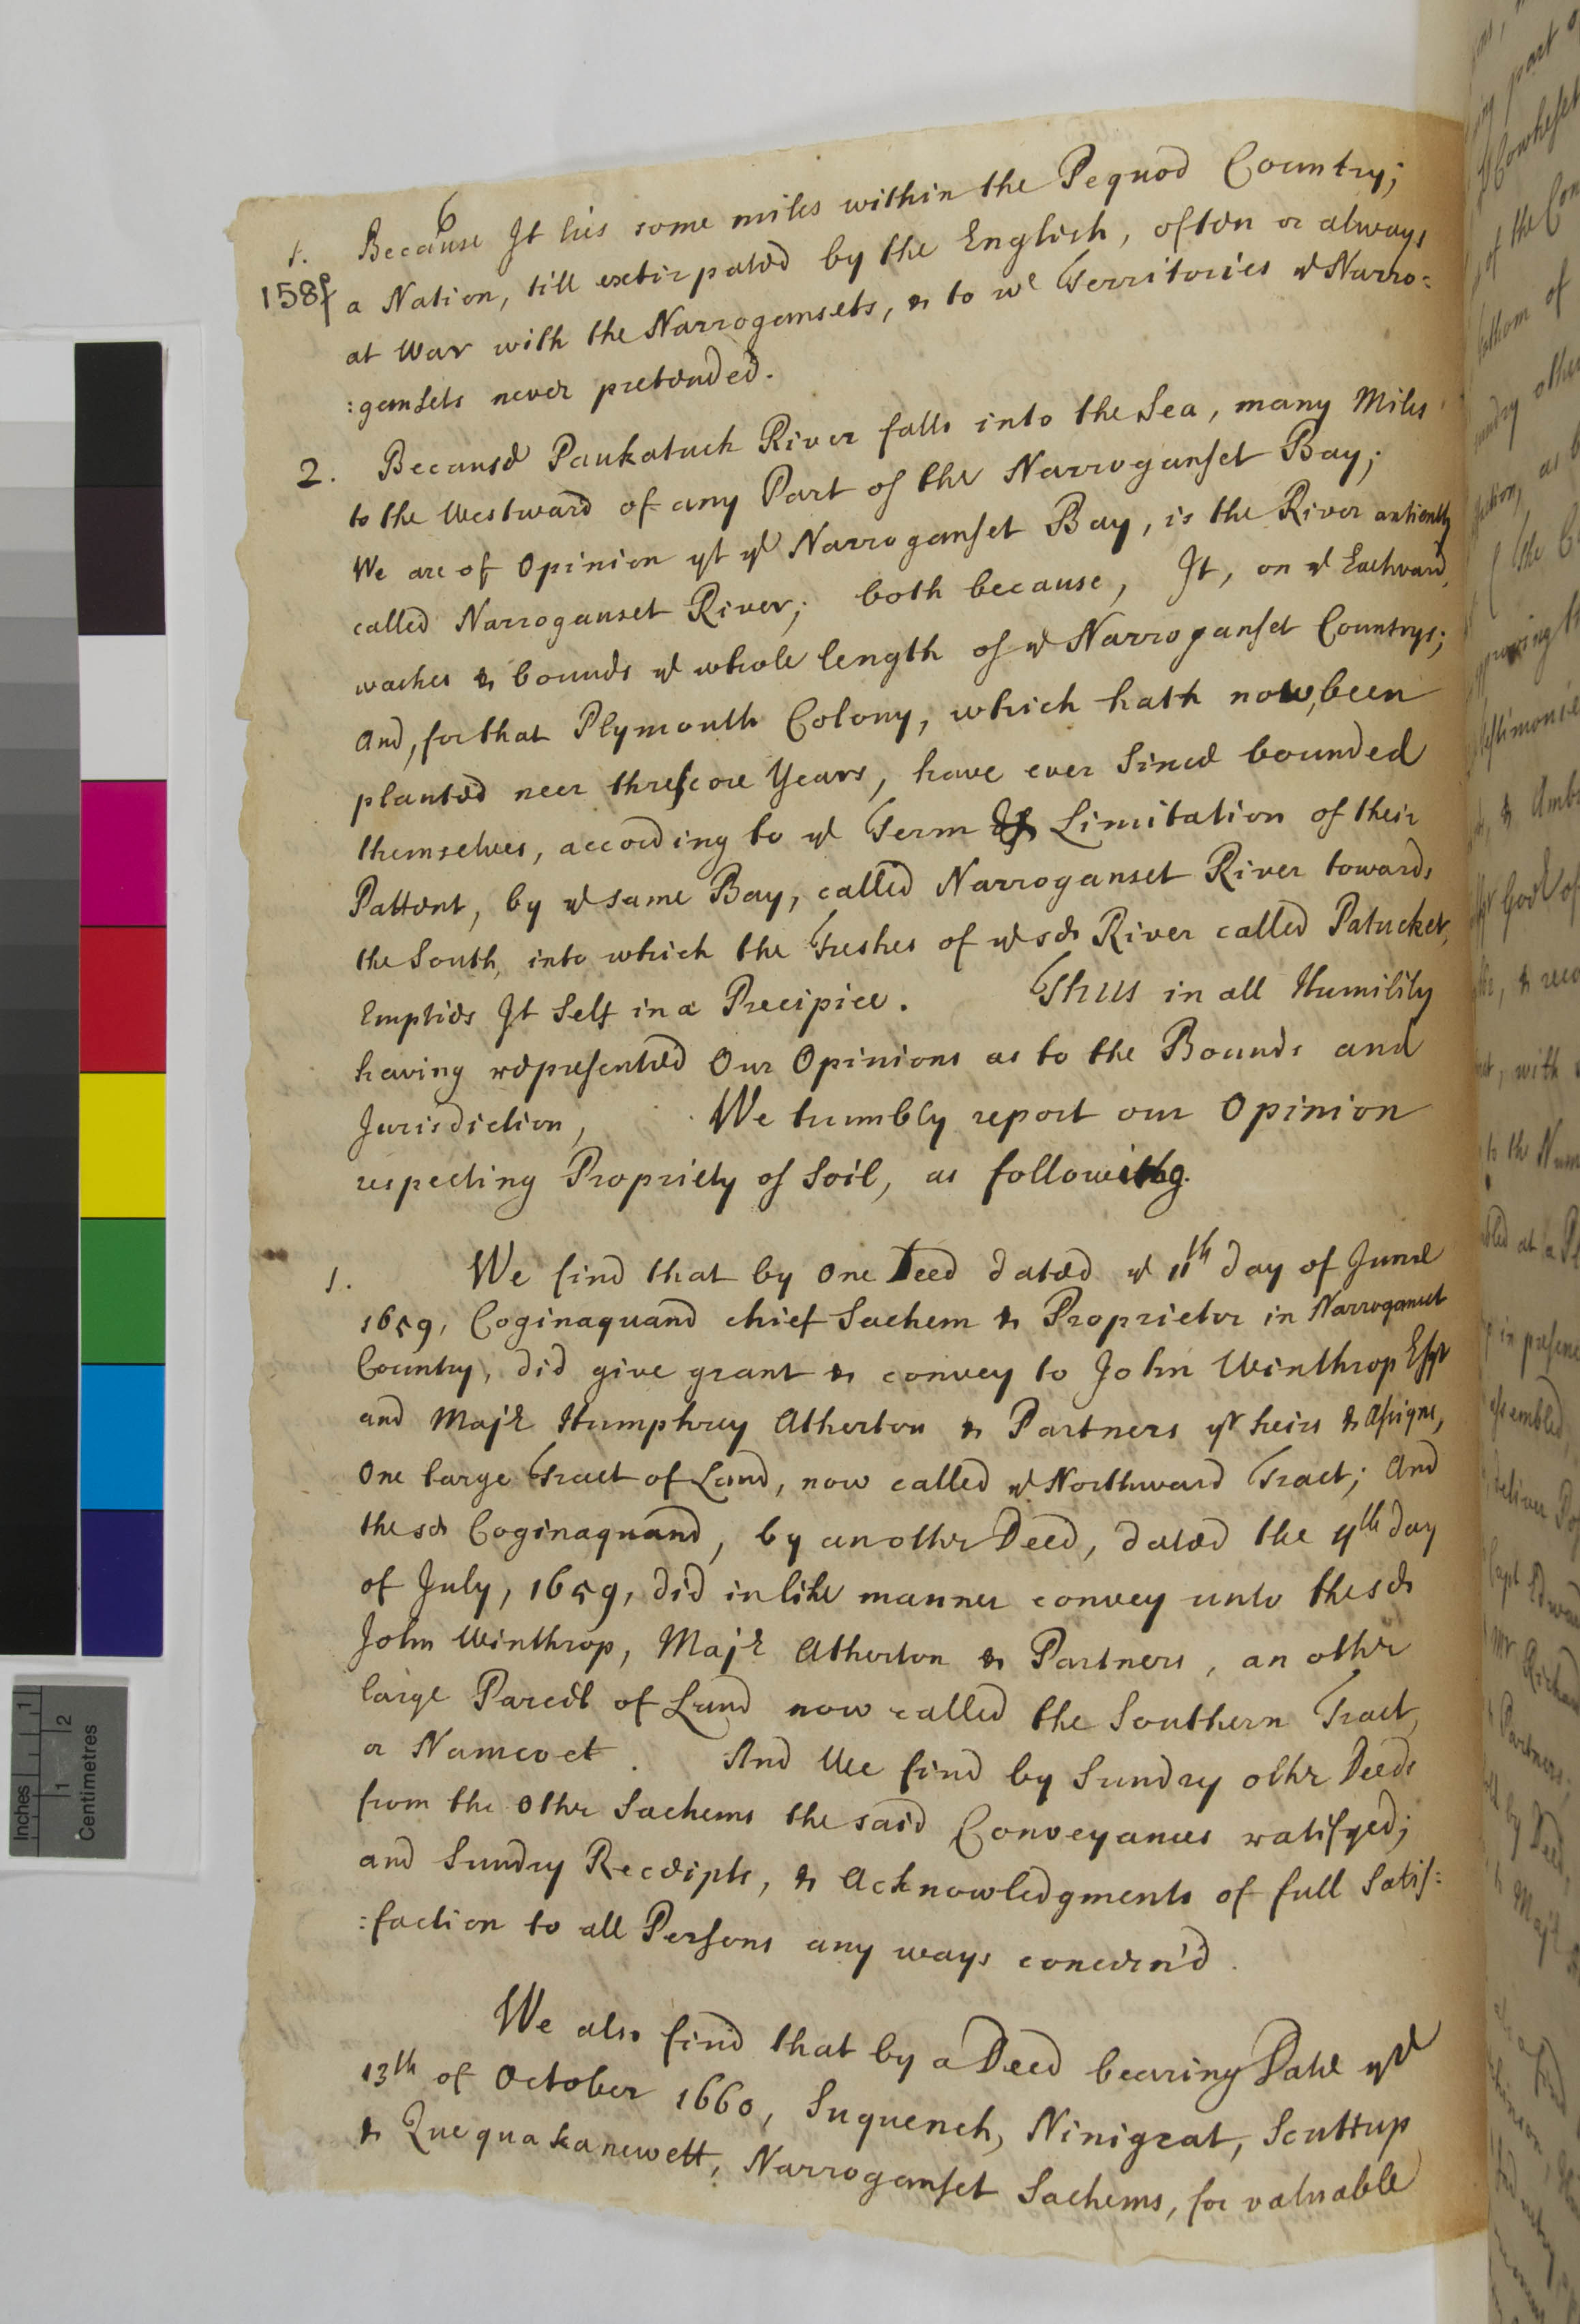 6
1. Because It lies some miles within the Pequod Country;
158f
a Nation, till extirpated by the English, often or always
at War with the Narrogansets, & to wc Territories ye Narro=
:gansets never pretended.
2. Because Paukatuck River falls into the Sea, many Miles
to the Westward of any Part of the Narroganset Bay;
We are of Opinion yt ye Narroganset Bay, is the River antiently
called Narroganset River; both because, It, on ye Eastward,
washes & bounds ye whole length of ye Narroganset Countrys;
And, for that Plymouth Colony, which hath now, been
planted neer threscore Years, have ever Since bounded
themselves, according to ye Term & Limitation of their
Pattent, by ye same Bay, called Narroganset River towards
the South, into which the Freshes of ye sd River called Patucket,
Empties It Self in a Precipice. Thus in all Humility
having represented Our Opinions as to the Bounds and
Jurisdiction, We humbly report our Opinion
respecting Propriety of Soil, as following.
1. We find that by One Deed dated ye 11th day of June
1659, Coginaquand chief Sachem & Proprietor in Narroganset
Country, did give grant & convey to John Winthrop Esqr
and Majr Humphrey Atherton & Partners yr heirs & Assigns,
One large Tract of Land, now called ye Northward Tract; And
the sd Coginaquand, by an othr Deed, dated the 4th day
of July, 1659, did in like manner convey unto the sd
John Winthrop, Majr Atherton & Partners, an othr
large Parcel of Land now called the Southern Tract,
or Namcoct. And We find by Sundry othr Deeds
from the Othr Sachems the said Conveyances ratifyed;
and Sundry Receipts, & Acknowledgments of full Satis=
:faction to all Persons any ways concern'd.
We also find that by a Deed bearing Date ye
13th of October 1660, Suquench, Ninigrat, Scuttup
& Quequakanewett, Narroganset Sachems, for valuable
Inches
1
1
2
Centimetres